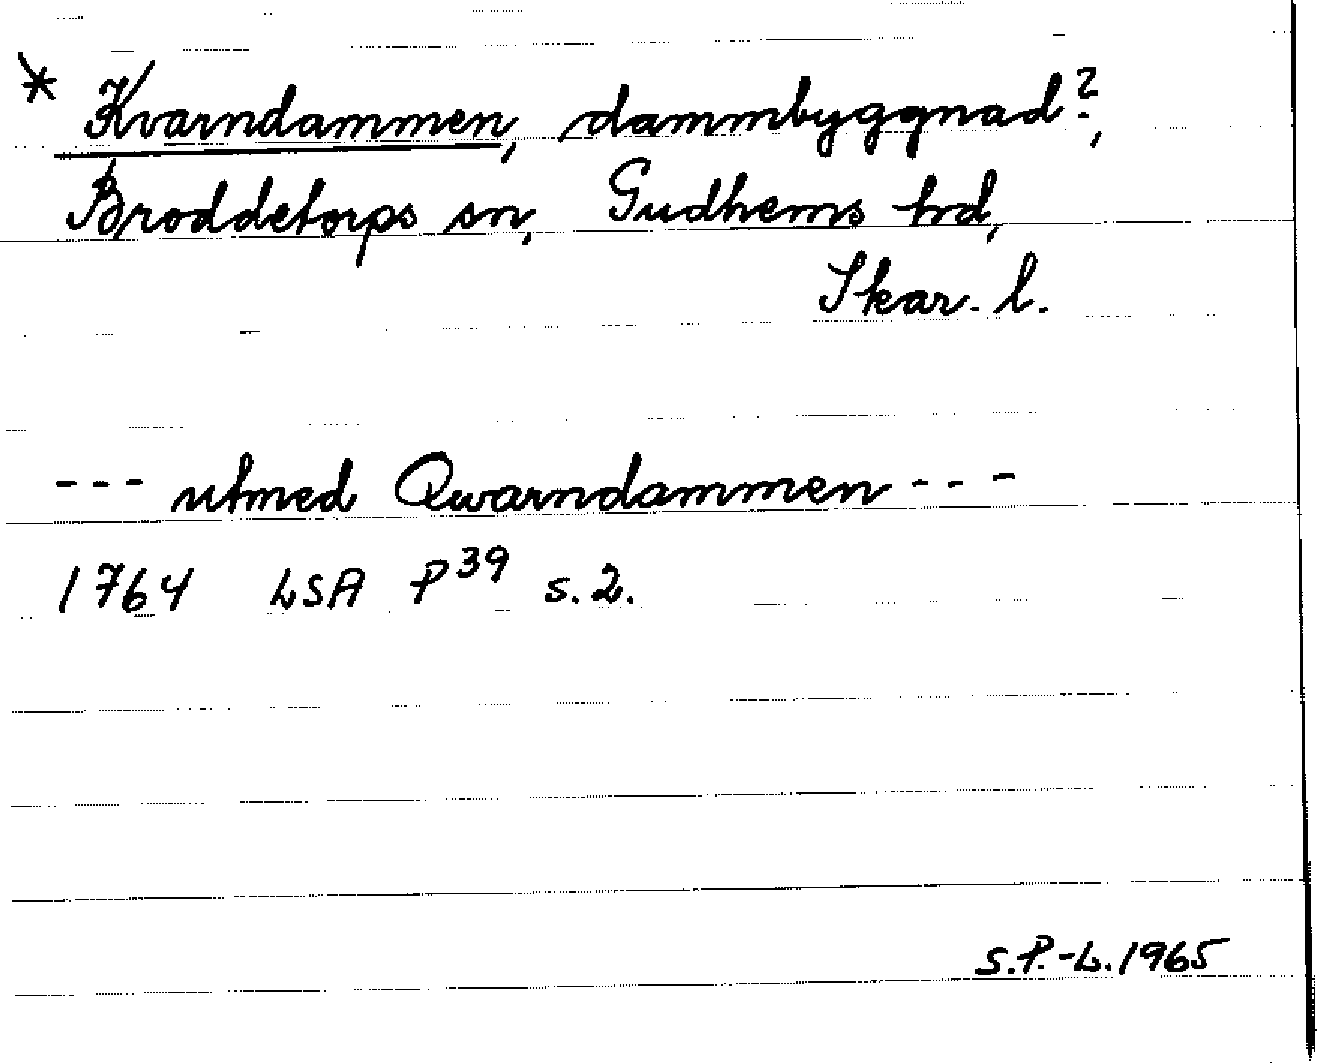 * Kvarndammen, dammbyggnad?,
Broddetorps sn, Gudhems hd,
Skar. l.
--- utmed Qwarndammen ---
1764 LSA P39 s. 2.
S.P.-L. 1965